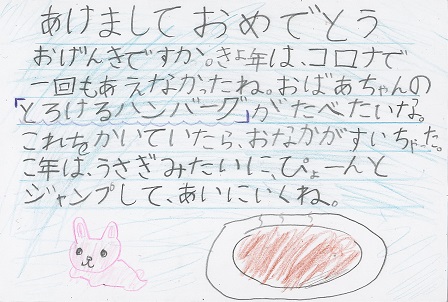 あけましておめでとう
おげんきですか。きょ年は、コロナで
一回もあえなかったね。おばあちゃんの
「とろけるハンバーグ」がたべたいな。
これをかいていたら、おなかがすいちゃった。
こ年は、うさぎみたいに、ぴょーんと
ジャンプして、あいにいくね。